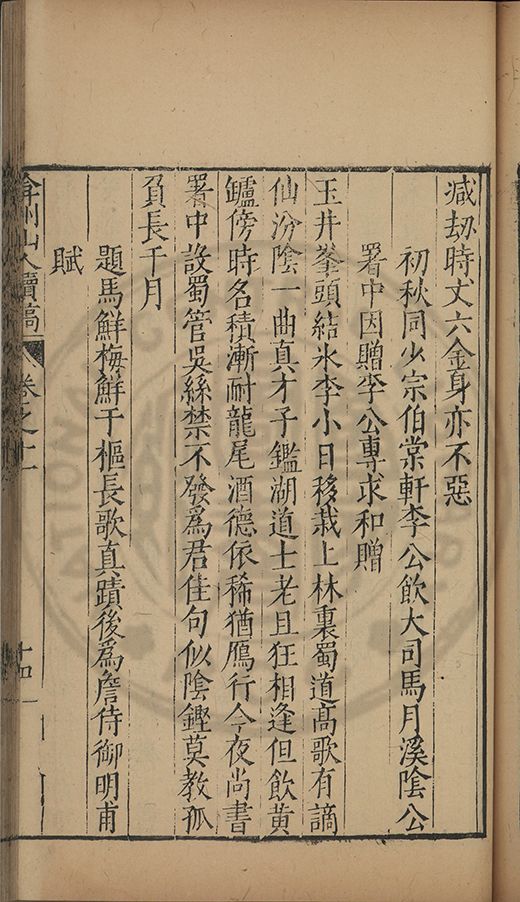 減劫時丈六金身亦不惡
初秋同少宗伯棠軒李公飲大司馬月溪陰公
署中因贈李公專求和贈
玉井峯頭結氷李小日移栽上林裏蜀道髙歌有謫
仙汾陰一曲真才子鑑湖道士老且狂相逢但飲黃
鑪傍時名積漸耐龍尾酒德依稀猶鴈行今夜尚書
署中設蜀管吳絲禁不發爲君佳句似陰鏗莫教孤
負長千月
題馬鮮梅鮮于樞長歌真蹟後爲詹侍御明甫
賦
弇州山人續稿 卷之十一 十四